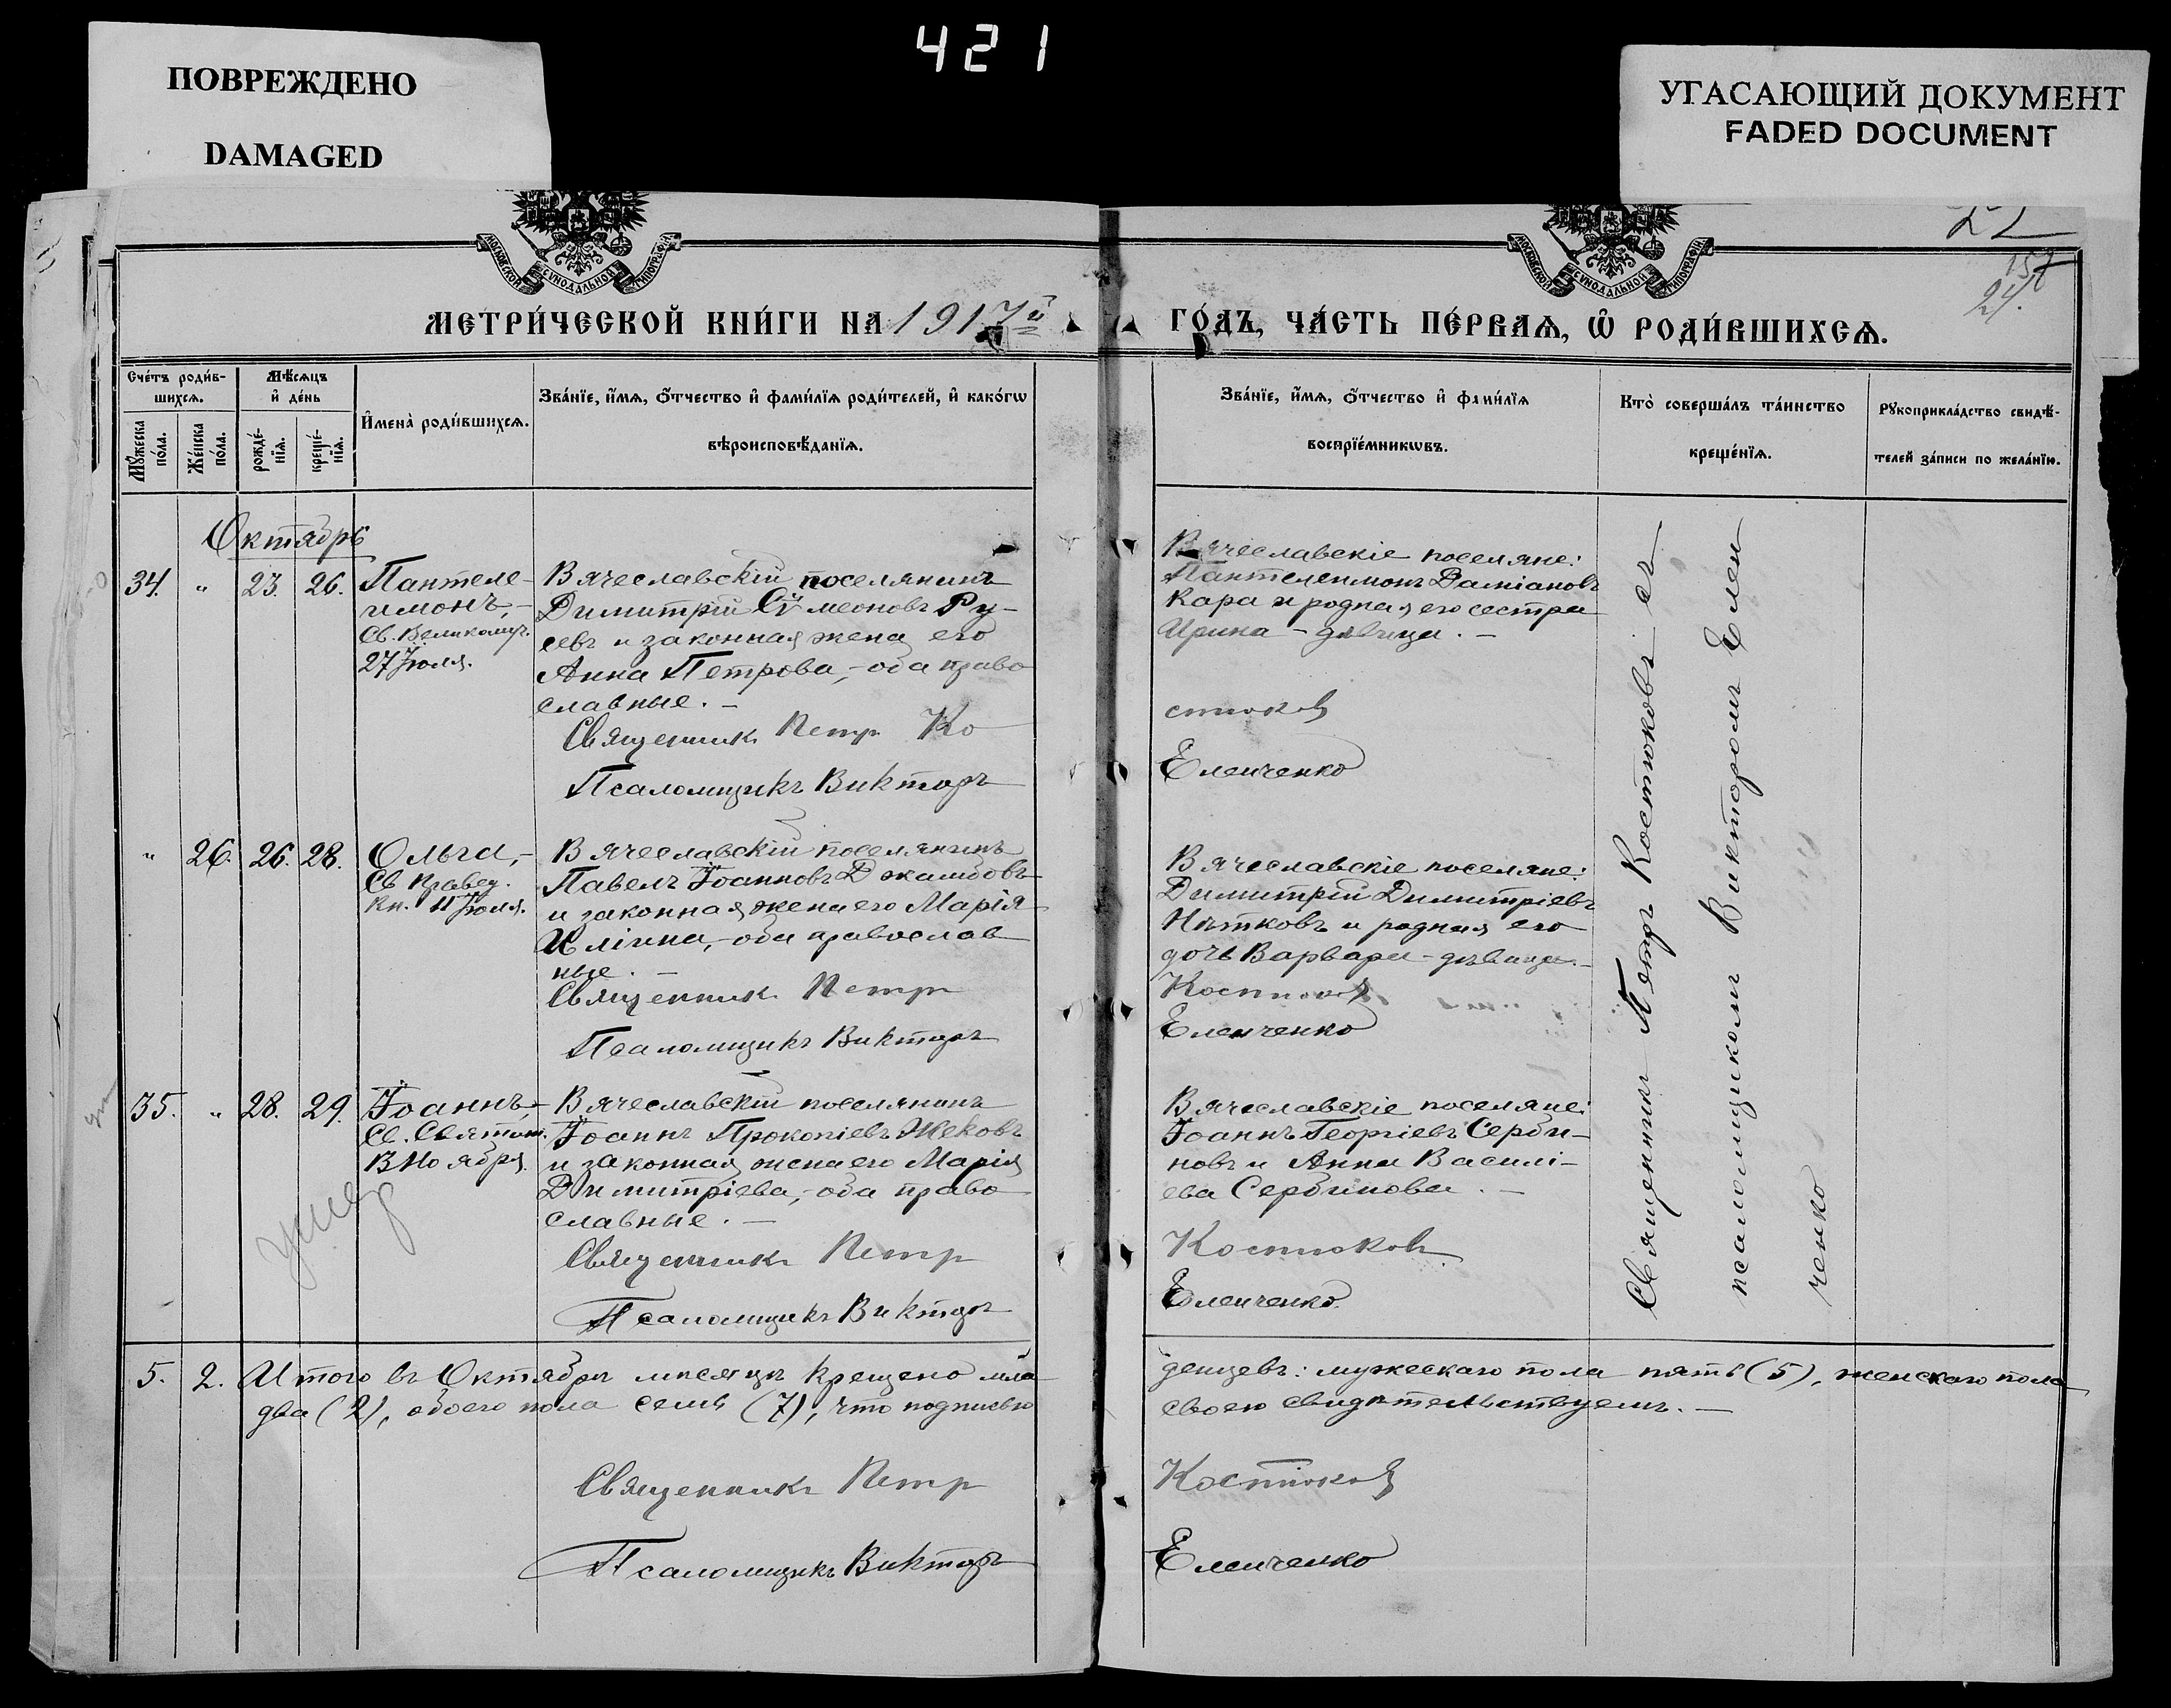 421
ПОВРЕЖДЕНО
DAMAGED
УГАСАЮЩИЙ ДОКУМЕНТ
FADED DOCUMENT
МОСКОВСКОЙ СУНОДАЛЬНОЙ ТИПОГРАФІИ
МОСКОВСКОЙ СУНОДАЛЬНОЙ ТИПОГРАФІИ
157
24.
МЕТРИ́ЧЕСКОЙ КНИ́ГИ НА 1917й
ГО́ДЪ, ЧА́СТЬ ПЕ́РВАѦ, Ѡ҆ РОДИ́ВШИХСѦ.
Сче́тъ роди́в-
шихсѧ.
Мѣ́сѧцъ
и҆ де́нь
Мꙋ́жеска
по́ла.
Же́нска
по́ла.
рожде́-
нїѧ.
креще́-
нїѧ.
И҆мена̀ роди́вшихсѧ.
Зва́нїе, и҆́мѧ, ѻ҆́тчество и҆ фами́лїѧ роди́телей, и҆ како́гѡ
вѣроисповѣ́данїѧ.
Зва́нїе, и҆́мѧ, ѻ҆́тчество и҆ фами́лїѧ
воспрїе́мникѡвъ.
Кто̀ соверша́лъ та́инство
креще́нїѧ.
Рꙋкоприкла́дство свидѣ́-
телей за́писи по жела́нїю.
Октябрь
34. " 23. 26.
Пантеле-
имонъ,-
Св. Великомуч.
27 Іюля.
Вячеславскій поселянинъ
Димитрій Сѵмеоновъ Ру-
севъ и законная жена его
Анна Петрова,- оба право
славные. -
Священникъ Петръ Ко
Псаломщикъ Викторъ
Вячеславскіе поселяне:
Пантелеимонъ Даміановъ
Кара и родная его сестра
Ирина - дѣвица. -
стюковъ
Еленченко
" 26. 26. 28.
Ольга,-
Св. Правед.
Кн. 11 Іюля.
Вячеславскій поселянинъ
Павелъ Іоанновъ Джамбовъ
и законная жена его Марія
Иліина,- оба православ
ные. -
Священникъ Петръ
Псаломщикъ Викторъ
Вячеславскіе поселяне:
Димитрій Димитріевъ
Нѣтковъ и родная его
дочь Варвара - дѣвица. -
Костюковъ
Еленченко
35. " 28. 29.
Іоаннъ,-
Св. Святит.
13 Ноября.
умер
Вячеславскій поселянинъ
Іоаннъ Прокопіевъ Жековъ
и законная жена его Марія
Димитріева,- оба право
славные. -
Священникъ Петръ
Псаломщикъ Викторъ
Вячеславскіе поселяне:
Іоаннъ Георгіевъ Серби-
новъ и Анна Василі-
ева Сербинова. -
Костюковъ
Еленченко
Священникъ Петръ Костюковъ съ
псаломщикомъ Викторомъ Елен
ченко
5. 2. Итого въ Октябрѣ мѣсяцѣ крещено мла
денцевъ: мужескаго пола пять (5), женскаго пола
два (2), обоего пола семь (7), что подписью
своею свидѣтельствуемъ. -
Священникъ Петръ
Костюковъ
Псаломщикъ Викторъ
Еленченко